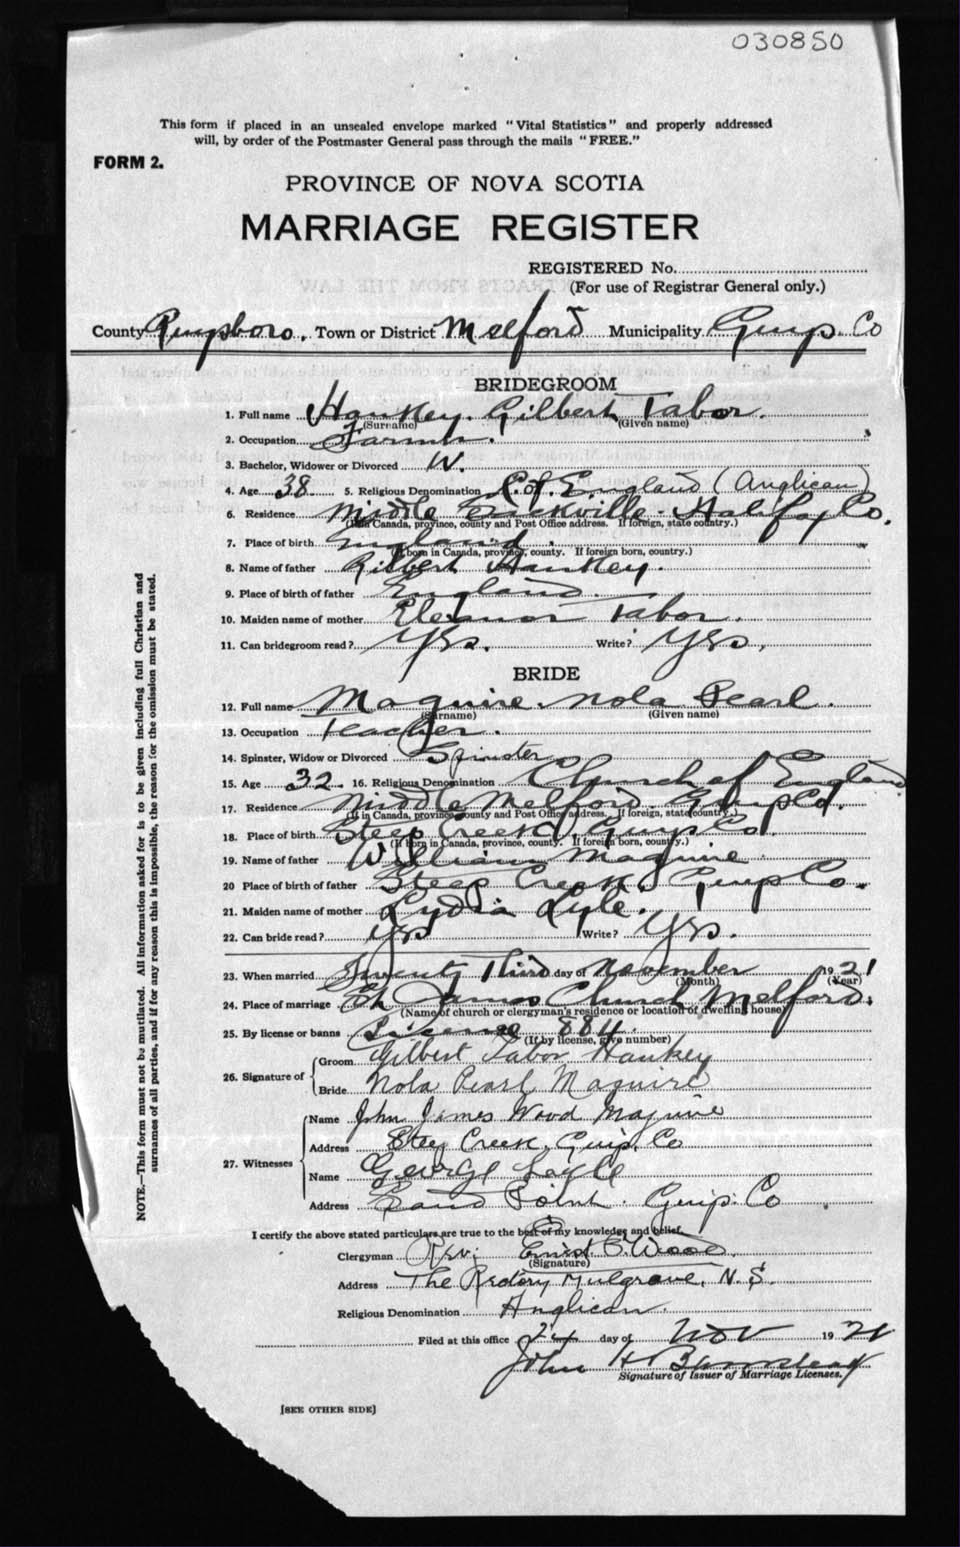 030850
This form if placed in an unsealed envelope marked "Vital Statistics" and properly addressed
will, by order of the Postmaster General pass through the mails "FREE."
FORM 2.
PROVINCE OF NOVA SCOTIA
MARRIAGE REGISTER
REGISTERED No.
(For use of Registrar General only.)
County Guysboro. Town or District Melford Municipality Guys. Co
BRIDEGROOM
1. Full name Hankey. Gilbert Tabor.
(Surname) (Given name)
2. Occupation Farmer.
3. Bachelor, Widower or Divorced W.
4. Age 38 5. Religious Denomination C. of England (Anglican)
6. Residence Middle Halifax Co.
(If in Canada, province, county and Post Office address. If foreign, state country.)
7. Place of birth England.
(If born in Canada, province, county. If foreign born, country.)
8. Name of father Gilbert Hankey.
9. Place of birth of father England.
10. Maiden name of mother Eleanor Tabor.
11. Can bridegroom read? Yes. Write? Yes.
BRIDE
12. Full name Maguire. Nola Pearl.
(Surname) (Given name)
13. Occupation Teacher.
14. Spinster, Widow or Divorced Spinster
15. Age 32 16. Religious Denomination Church of England
17. Residence Middle Melford. Guys Co.
(If in Canada, province, county and Post Office address. If foreign, state country.)
18. Place of birth Steep Creek, Guys Co.
(If born in Canada, province, county. If foreign born, country.)
19. Name of father William Maguire
20 Place of birth of father Steep Creek, Guys Co.
21. Maiden name of mother Lydia Lyle.
22. Can bride read? Yes Write? Yes.
23. When married Twenty Third day of November 1921
(Month) (Year)
24. Place of marriage James Church Melford.
(Name of church or clergyman's residence or location of dwelling house)
25. By license or banns License 884.
(If by license, give number)
26. Signature of Groom Gilbert Tabor Hankey
Bride Nola Pearl Maguire
27. Witnesses Name John James Wood Maguire
Address Steep Creek, Guys. Co
Name George
Address Sand Point. Guys. Co
I certify the above stated particulars are true to the best of my knowledge and belief.
Clergyman Rev. Ernest Wood.
(Signature)
Address The Rectory Mulgrave, N.S.
Religious Denomination Anglican.
Filed at this office 24 day of Nov 1921
John H
Signature of Issuer of Marriage Licenses.
[SEE OTHER SIDE]
NOTE.—This form must not be mutilated. All information asked for is to be given including full Christian and
surnames of all parties, and if for any reason this is impossible, the reason for the omission must be stated.